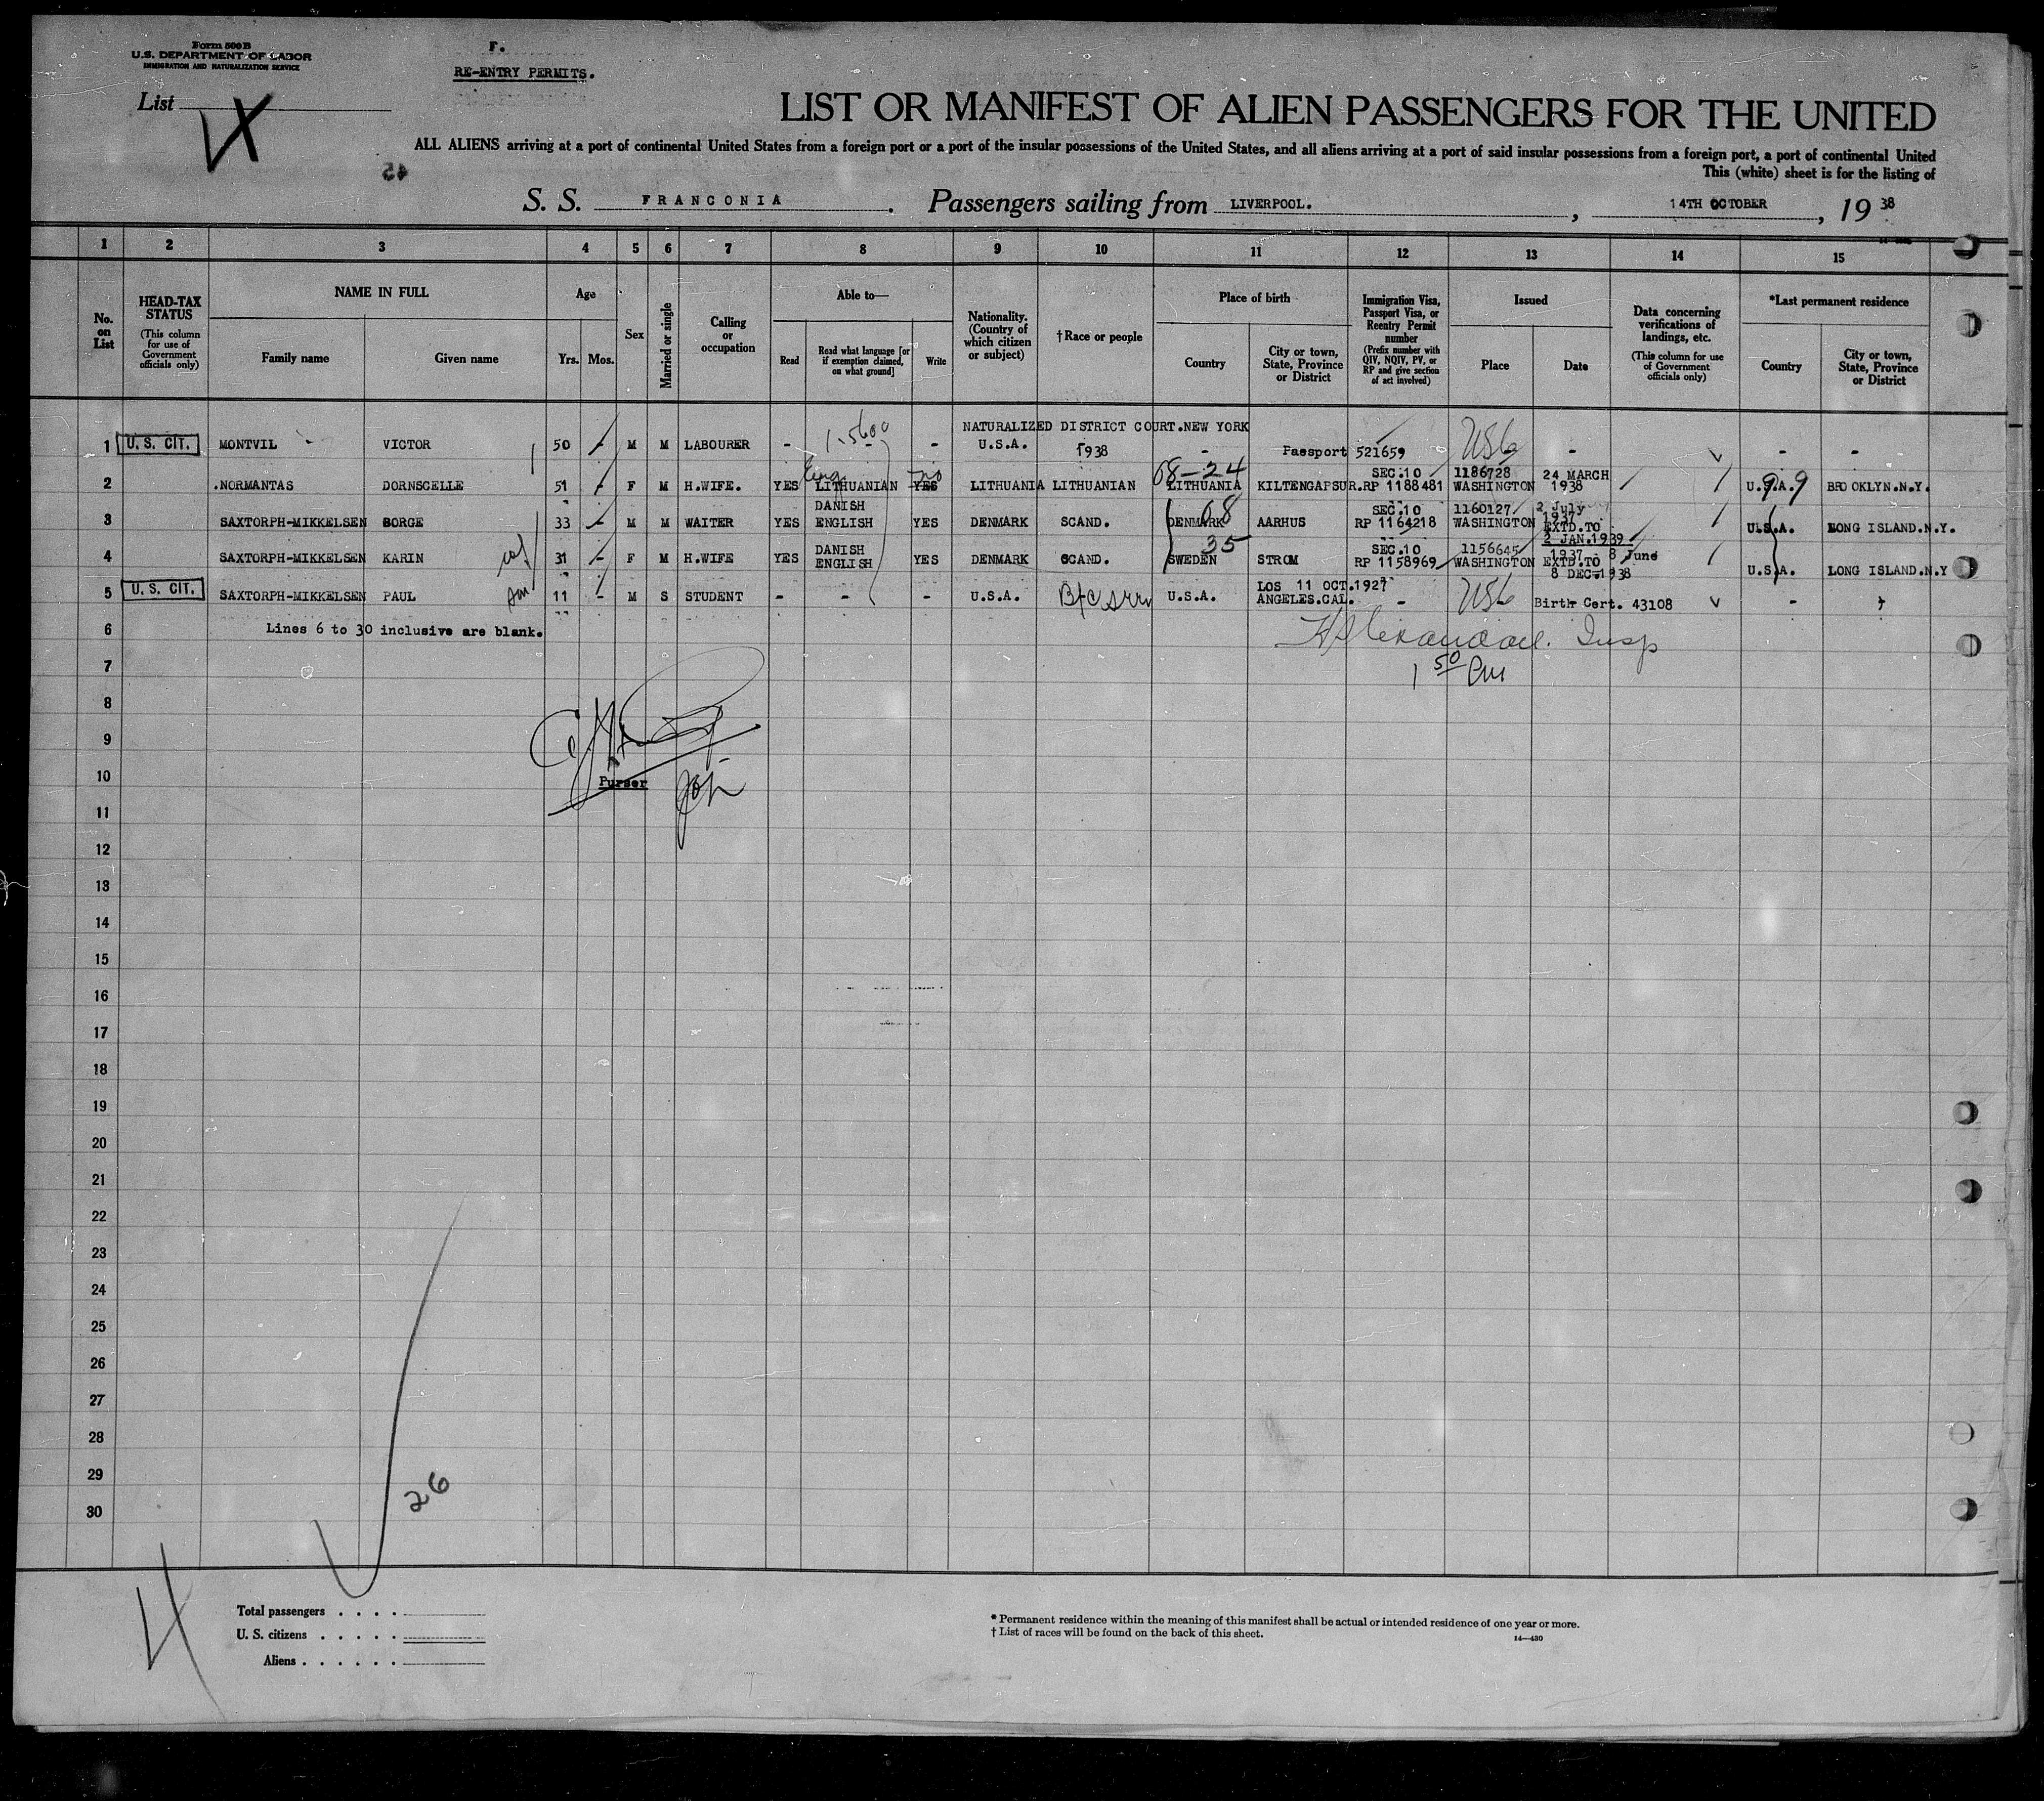 Form 500B
U.S. DEPARTMENT OF LABOR
IMMIGRATION AND NATURALIZATION SERVICE
F.
RE-ENTRY PERMITS.
List
LIST OR MANIFEST OF ALIEN PASSENGERS FOR THE UNITED
ALL ALIENS arriving at a port of continental United States from a foreign port or a port of the insular possessions of the United States, and all aliens arriving at a port of said insular possessions from a foreign port, a port of continental United
This (white) sheet is for the listing of
S. S. FRANCONIA. Passengers sailing from LIVERPOOL., 14TH OCTOBER, 19 38
1 2 3 4 5 6 7 8 9 10 11 12 13 14 15
No. on List
HEAD-TAX STATUS (This column for use of Government officials only)
NAME IN FULL
Family name
Given name
Age
Yrs. Mos.
Sex
Married or single
Calling or occupation
Able to—
Read
Read what language [or if exemption claimed, on what ground]
Write
Nationality. (Country of which citizen or subject)
†Race or people
Place of birth
Country
City or town, State, Province or District
Immigration Visa, Passport Visa, or Reentry Permit number (Prefix number with QIV, NQIV, PV, or RP and give section of act involved)
Issued
Place
Date
Data concerning verifications of landings, etc. (This column for use of Government officials only)
*Last permanent residence
Country
City or town, State, Province or District
NATURALIZED DISTRICT COURT.NEW YORK
1 U. S. CIT. MONTVIL VICTOR 50 - M M LABOURER - - - U.S.A. 1938 - Passport 521659 - - -
2 .NORMANTAS DORNSCELLE 51 - F M H.WIFE. YES Eng LITHUANIAN YES no LITHUANIA LITHUANIAN 68-24 LITHUANIA KILTENGAPSUR. SEC.10 RP 1188481 1186728 WASHINGTON 24 MARCH 1938 U.S.A. BROOKLYN.N.Y.
3 SAXTORPH-MIKKELSEN BORGE 33 - M M WAITER YES DANISH ENGLISH YES DENMARK SCAND. 68 DENMARK AARHUS SEC.10 RP 1164218 1160127 WASHINGTON 2 July 1937 EXTD.TO 2 JAN.1939 U.S.A. LONG ISLAND.N.Y.
4 SAXTORPH-MIKKELSEN KARIN 31 - F M H.WIFE YES DANISH ENGLISH YES DENMARK SCAND. 35 SWEDEN STROM SEC.10 RP 1158969 1156645 WASHINGTON 1937 - 8 June EXTD.TO 8 DEC.1938 U.S.A. LONG ISLAND.N.Y
5 U. S. CIT. SAXTORPH-MIKKELSEN PAUL son 11 - M S STUDENT - - - U.S.A. U.S.A. LOS 11 OCT.1927 ANGELES.CAL. - Birth Cert. 43108 -
6 Lines 6 to 30 inclusive are blank.
Insp
1 50 Pm
7
8
9
10
Purser
11
12
13
14
15
16
17
18
19
20
21
22
23
24
25
26
27
28
29
30
26
Total passengers
U. S. citizens
Aliens
* Permanent residence within the meaning of this manifest shall be actual or intended residence of one year or more.
† List of races will be found on the back of this sheet.
14—430